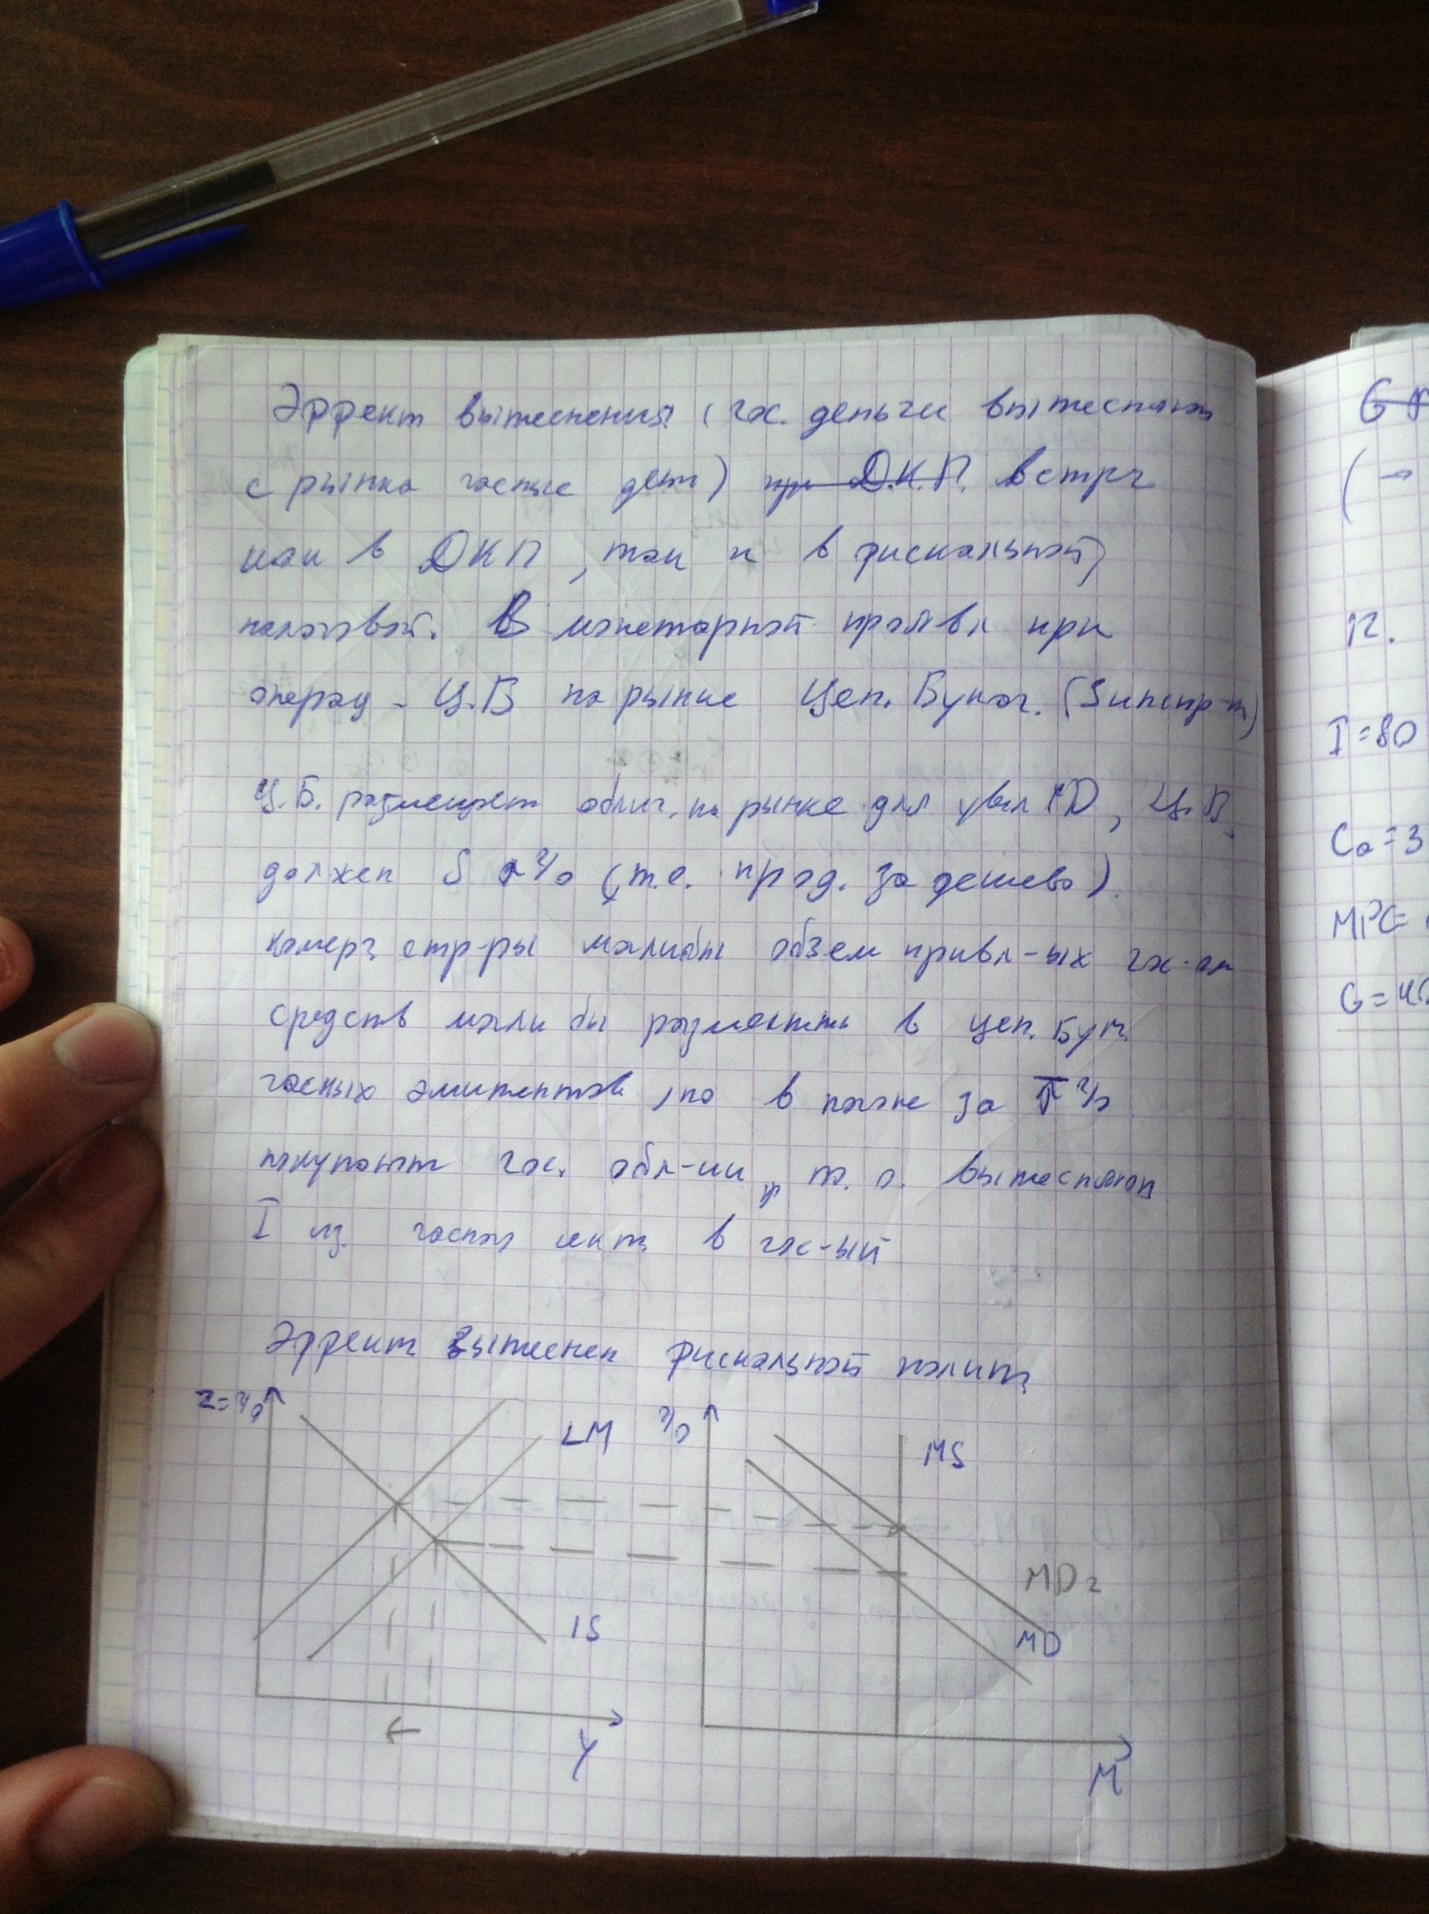 Эффект вытеснения (гос. деньги вытесняют
с рынка частные ден) при Д.К.П. встреч
как в ДКП, так и в фискальной
налоговой. В монетарной проявл при
операц. Ц.Б на рынке Цен. Бумаг. (3 инстр-т)
Ц.Б. размещает облиг. на рынке для увел MD, Ц.Б.
должен ↑% (т.е. прод. за дешево).
Комерч стр-ры могли бы обзем привл-ых гос-ом
средств могли бы разместить в цен. бум.
частных эмитентов, но в погоне за ↑%
покупают гос. обл-ии, т. о. вытесняют
I из частн сект в гос-ый
Эффект вытеснен фискальной полит
r=% LM % MS
MD2
IS MD
Y M
G
(→
12.
I=80
Co=3
MPC=
G=